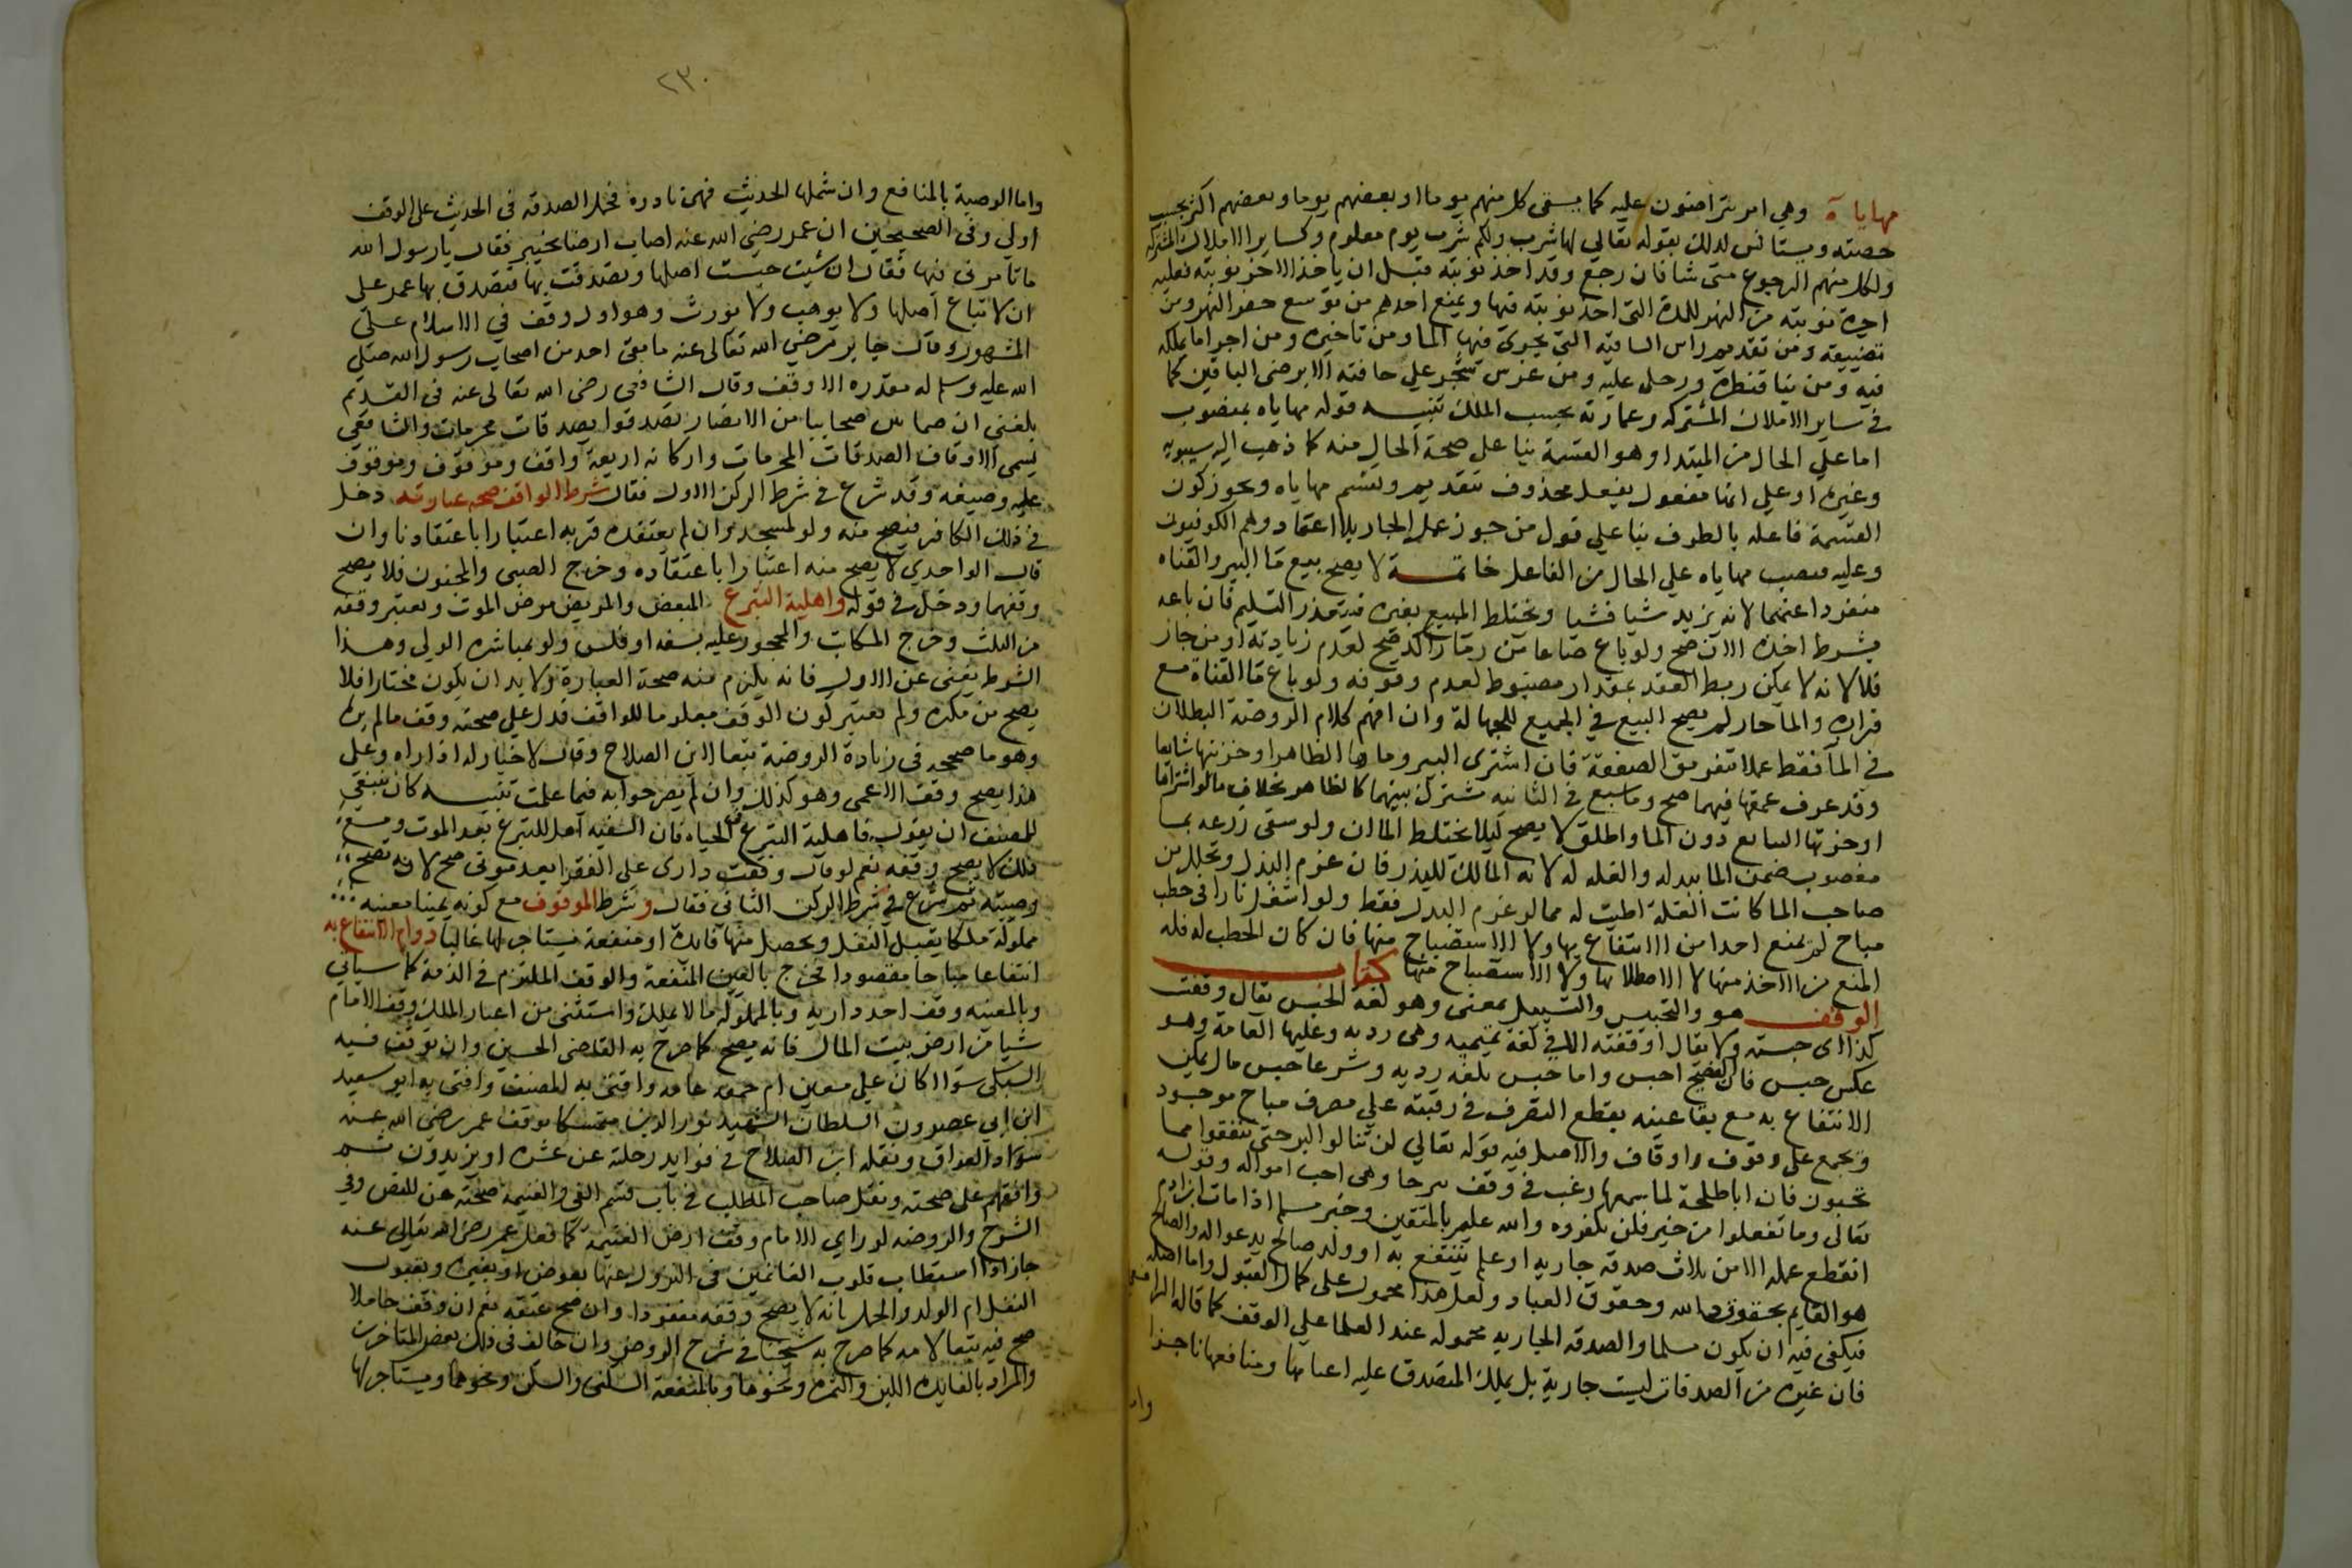 مهاياة وهي امر يتراضون عليه كما يسقى كل منهم يوما او بعضهم يوما وبعضهم اكثر بحسب
حصته ويستانس لذلك بقوله تعالي لها شرب ولكم شرب يوم معلوم وكساير الاملاك المشتركه
ولكل منهم الرجوع متى شا فان رجع وقد اخذ نوبته قبل ان ياخذ الاخر نوبته فعليه
اجرة نوبته من النهر للمدة التى اخذ نوبته فيها ويمنع احدهم من توسع حفر النهر ومن
تضييقه ومن تقديم راس الساقيه التي يجرى فيها الما ومن تاخيره ومن اجرا ما يملكه
فيه ومن بنا قنطرة ورحى عليه ومن غرس شجر علي حافته الا برضى الباقين كما
في ساير الاملاك المشتركه وعمارته بحسب الملك تنبيه قوله مهاياه بمنصوب
اما علي الحال من المبتدا وهو القسمة بنا على صحة الحال منه كما ذهب اليه سيبويه
وغيره او علي انها مفعول بفعل محذوف تقديره وتقسم مهاياه ويجوز كون
القسمة فاعله بالظرف بنا علي قول من جوز عمل الجار بلا اعتماد وهم الكوفيون
وعليه فنصب مهاياه علي الحال من الفاعل خاتمة لا يصح بيع ما البير والقناه
منفردا عنهما لانه يزيد شيا فشيا ويختلط المبيع بغيره فيتعذر التسليم فان باعه
بشرط اخذه الان صح ولو باع صاعا من ما راكد صح لعدم زيادته او من جار
فلا لانه لا يمكن ربط العقد بمقدار مضبوط لعدم وقوفه ولو باع ما القناة مع
قراره والما جار لم يصح البيع في الجميع للجهالة وان افهم كلام الروضة البطلان
في الما فقط عملا بتفريق الصفقة فان اشترى البير وماها الظاهر او جزئها شايعا
وقد عرف عمقها فيهما صح وما ينبع في الثانيه مشترك بينهما كالظاهر بخلاف ما لو اشتراها
او جزئها الشايع دون الما او اطلق لا يصح ليلا يختلط الماان ولو سقى زرعه بما
مغصوب ضمن الما ببدله والغله له لانه المالك للبذر فان غرم البدل وتحلل من
صاحب الما كانت الغلة اطيب له مما لو غرم البدل فقط ولو اشعل نارا في حطب
مباح لم يمنع احدا من الانتفاع بها ولا الاستصباح منها فان كان الحطب له فله
المنع من الاخذ منها لا الاصطلا بها ولا الاستصباح منها كتاب
الوقف هو والتحبيس والتسبيل بمعنى وهو لغة الحبس يقال وقفت
كذا اى حبسته ولا يقال اوقفته الا في لغة تميميه وهي رديه وعليها العامة وهو
عكس حبس فان الفصيح احبس واما حبس بلغه رديه وشرعا حبس مال يمكن
الانتفاع به مع بقا عينه بقطع التصرف في رقبته علي مصرف مباح موجود
ويجمع على وقوف واوقاف والاصل فيه قوله تعالي لن تنالوا البر حتى تنفقوا مما
تحبون فان ابا طلحة لما سمعها رغب في وقف بيرحا وهى احب امواله وقوله
تعالى وما تفعلوا من خير فلن تكفروه والله عليم بالمتقين وخبر مسلم اذا مات ابن ادم
انقطع عمله الا من ثلاث صدقه جاريه او علم ينتفع به او ولد صالح يدعو اله والصالح
هو القايم بحقوق الله وحقوق العباد ولعل هذا محمول على كمال القبول واما اصله
فيكفى فيه ان يكون مسلما والصدقه الجاريه محموله عند العلما علي الوقف كما قاله الرافعي
فان غيره من الصدقات ليست جارية بل يملك المتصدق عليه اعيانها ومنافعها ناجزا
واما
٢٣٠
واما الوصية بالمنافع وان شملها الحديث فهى نادرة فحمل الصدقه فى الحديث على الوقف
اولي وفي الصحيحين ان عمر رضي الله عنه اصاب ارضا بخيبر فقال يا رسول الله
ما تامرنى فيها فقال ان شيت حبست اصلها وتصدقت بها فتصدق بها عمر على
ان لا تباع اصلها ولا يوهب ولا يورث وهو اول وقف في الاسلام على
المشهور وقال جابر رضي الله تعالى عنه ما بقى احد من اصحاب رسول الله صلي
الله عليه وسلم له مقدره الا وقف وقال الشافعي رضى الله تعالى عنه فى القديم
بلغني ان ثمانين صحابيا من الانصار تصدقوا بصدقات محرمات والشافعي
يسمى الاوقاف الصدقات المحرمات واركانه اربعة واقف وموقوف وموقوف
عليه وصيغه وقد شرع في شرط الركن الاول فقال شرط الواقف صحة عبارته دخل
في ذلك الكافر فيصح منه ولو لمسجد وان لم يعتقده قربه اعتبارا باعتقادنا وان
قال الواحدي لا يصح منه اعتبارا باعتقاده وخرج الصبي والمجنون فلا يصح
وقفهما ودخل في قوله واهلية التبرع المبعض والمريض مرض الموت ويعتبر وقفه
من الثلث وخرج المكاتب والمحجور عليه بسفه او فلس ولو بمباشرة الولي وهذا
الشرط يغنى عن الاول فانه يلزم منه صحة العبارة ولا بد ان يكون مختارا فلا
يصح من مكره ولم يعتبر كون الوقف معلوما للواقف فدل علي صحته وقف ما لم يره
وهو ما صححه في زيادة الروضة تبعا لابن الصلاح وقال لا خيار له اذا راه وعلي
هذا يصح وقف الاعمى وهو كذلك وان لم يصرحوا به فيما علمت تنبيه كان ينبغي
للمصنف ان يقول فاهلية التبرع فى الحياه فان السفيه اهل للتبرع بعد الموت ومع
ذلك لا يصح وقفه نعم لو قال وقفت دارى على الفقرا بعد موتى صح لانه تصح
وصيته ثم شرع في شرط الركن الثاني فقال وشرط الموقوف مع كونه عينا معينه
مملوكة ملكا يقبل النقل ويحصل منها فائدة او منفعة يستاجر لها غالبا دوام الانتفاع به
انتفاعا مباحا مقصودا فخرج بالعين المنفعة والوقف الملتزم في الذمة كما سياتي
وبالمعينه وقف احد داريه وبالمملوكه ما لا يملك واستثنى من اعتبار الملك وقف الامام
شيا من ارض بيت المال فانه يصح كما صرح به القاضى الحسين وان توقف فيه
السبكي سوا اكان على معين ام جهه عامه وافتى به المصنف وافتى به ابو سعيد
ابن ابي عصرون السلطان الشهيد نور الدين متمسكا بوقف عمر رضي الله عنه
سواد العراق ونقله ابن الصلاح في فوايد رحلته عن عشره او يزيدون ثم
وافقهم على صحته ونقل صاحب المطلب في باب قسم الفى والغنيمه صحته عن النص وفي
الشرح والروضه لو راي الامام وقف ارض الغنيمه كما فعل عمر رضي الله تعالى عنه
جاز اذا استطاب قلوب الغانمين في النزول عنها بعوض او بغيره وبقبول
النقل ام الولد والحمل بانه لا يصح وقفه منفردا وان صح عتقه نعم ان وقف حاملا
صح فيه تبعا لامه كما صرح به شيخنا في شرح الروض وان خالف فى ذلك بعض المتاخرين
والمراد بالفايدة اللبن والثمرة ونحوها وبالمنفعة السكنى والسكن ونحوهما ويستاجر لها